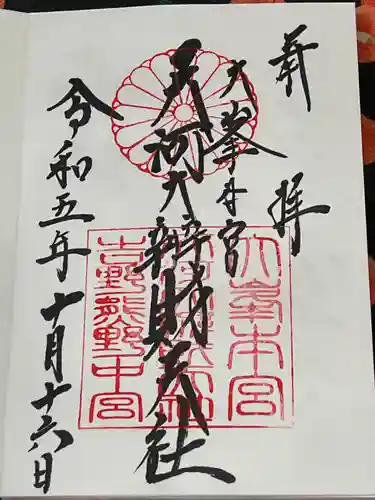 奉拝
大峯本宮
天河大辨財天社
令和五年十月十六日
大峯本宮
吉野熊野中宮